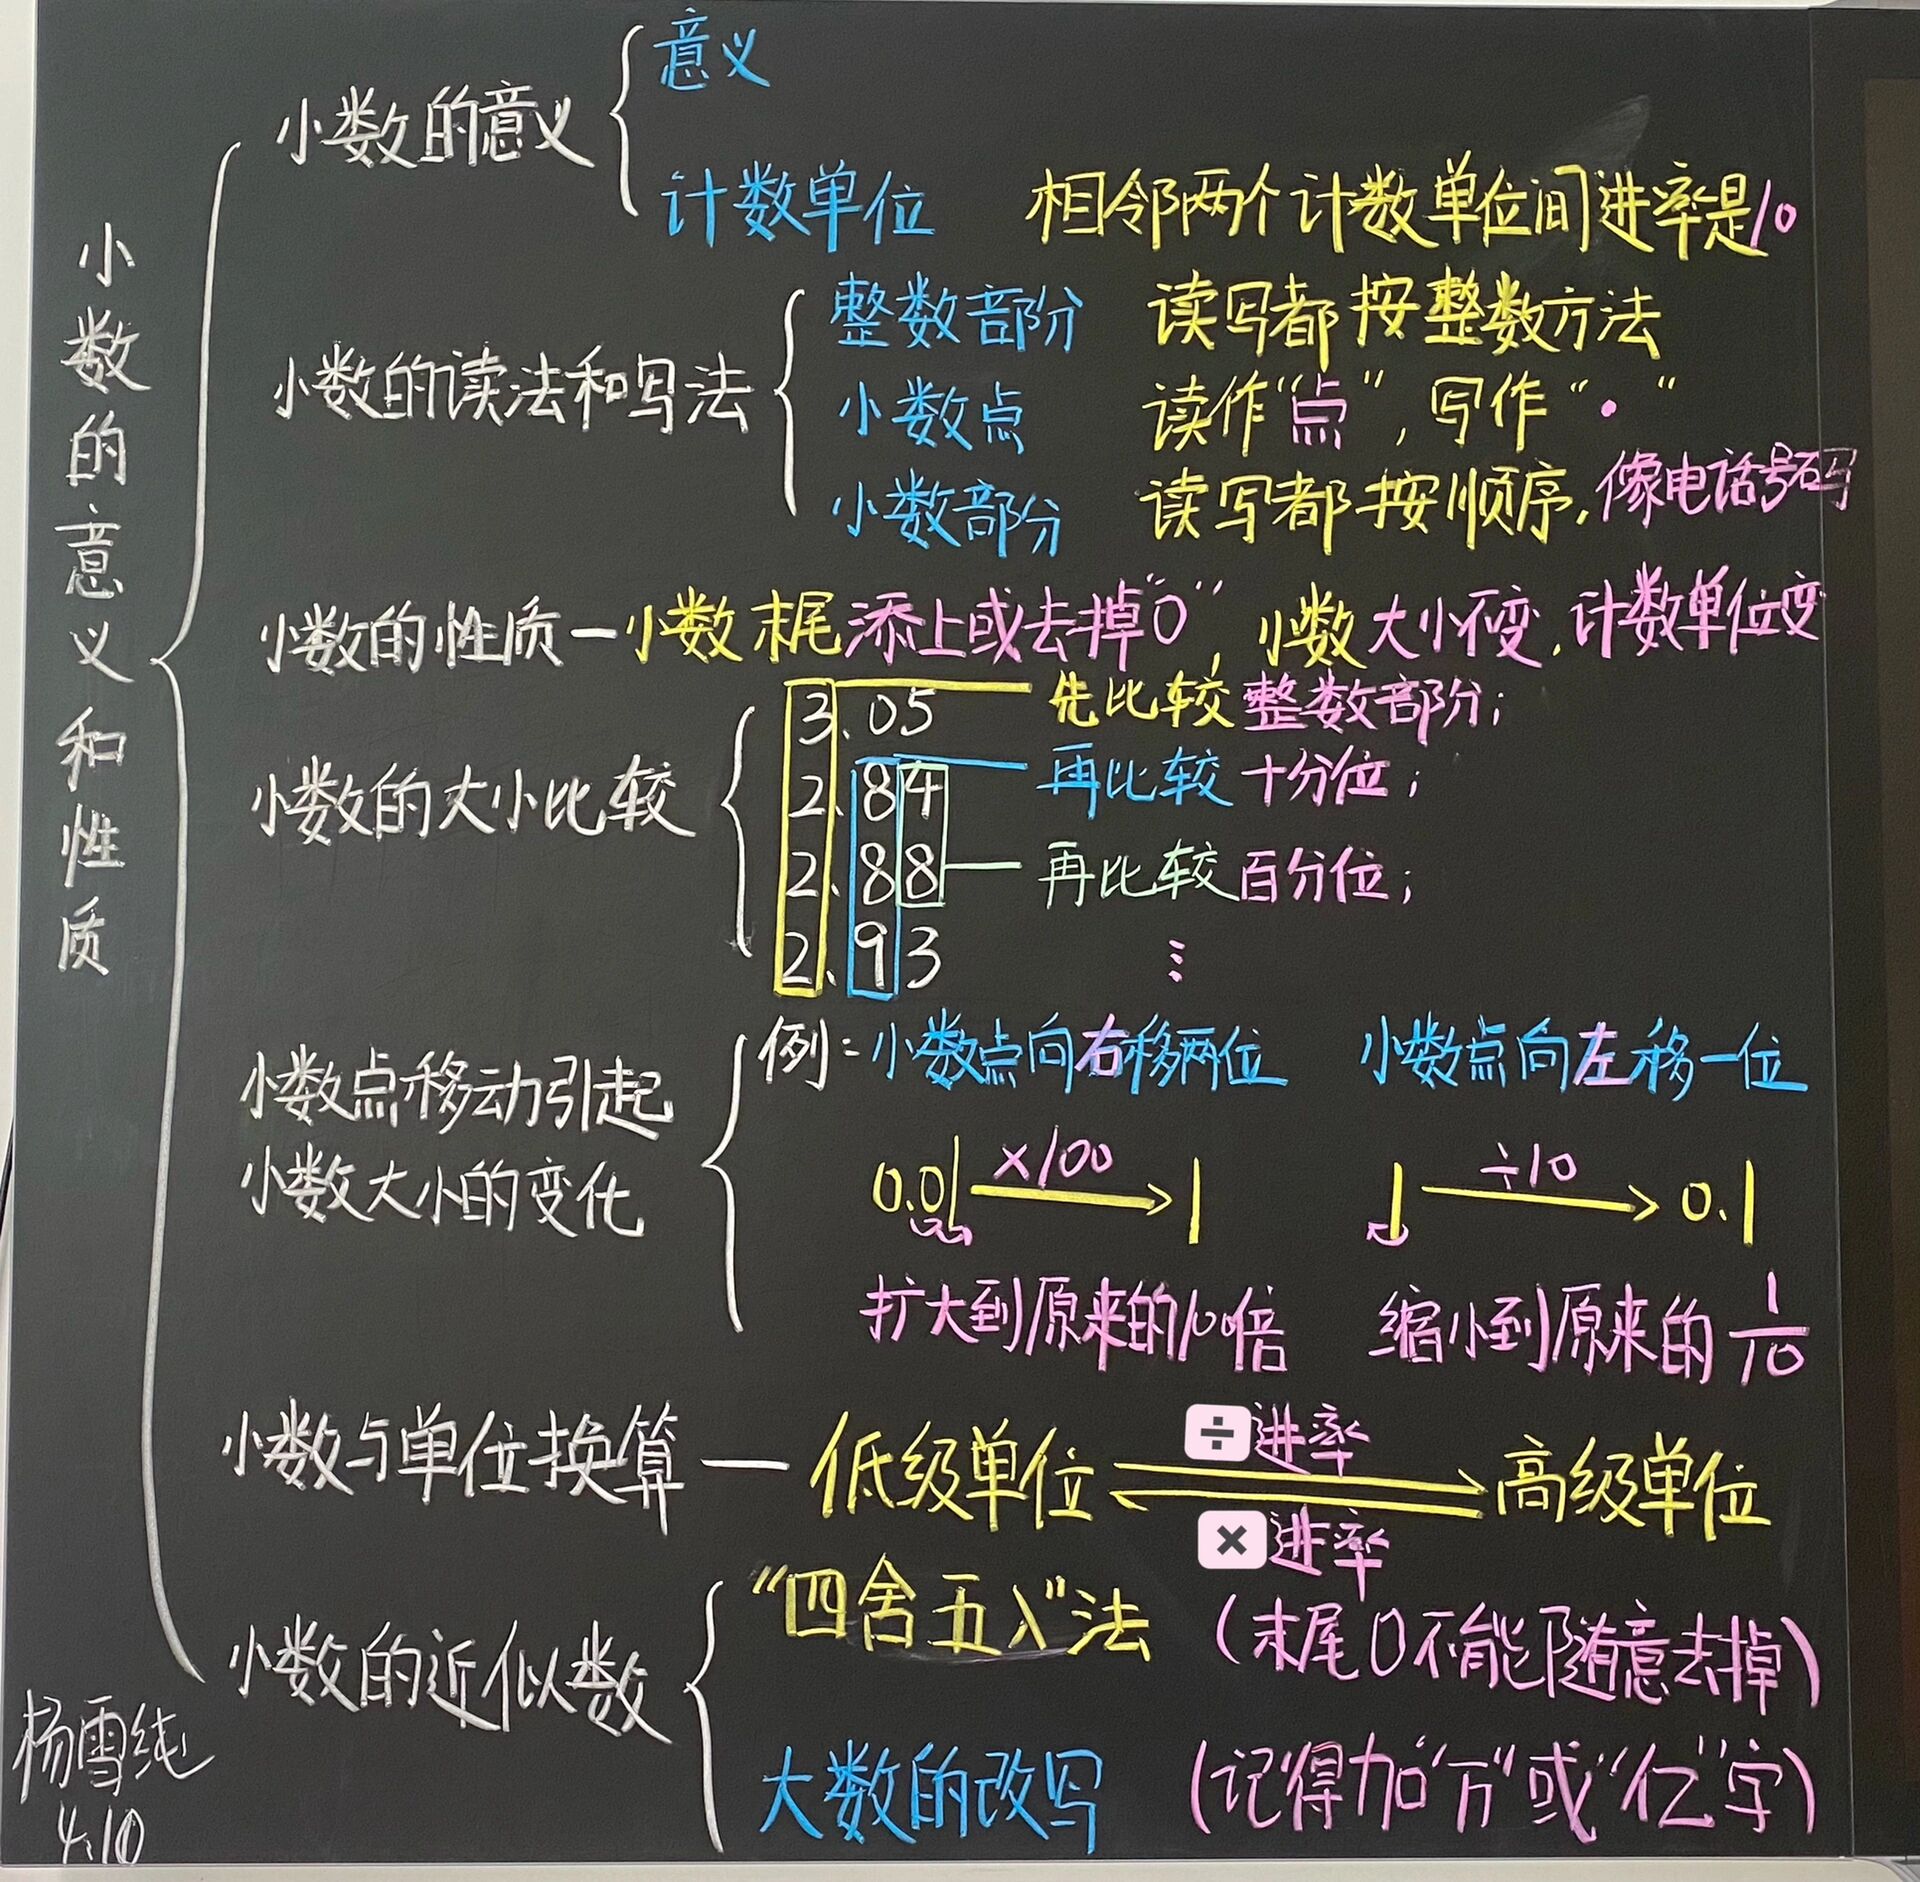 小数的意义和性质
小数的意义
意义
计数单位 相邻两个计数单位间进率是10
小数的读法和写法
整数部分 读写都按整数方法
小数点 读作“点”，写作“·”
小数部分 读写都按顺序，像电话号码
小数的性质—小数末尾添上或去掉“0”，小数大小不变，计数单位变
小数的大小比较
3.05 先比较整数部分；
2.84 再比较十分位；
2.88 再比较百分位；
2.93 ⋮
小数点移动引起
小数大小的变化
例：小数点向右移两位 小数点向左移一位
0.01 ×100 1 1 ÷10 0.1
扩大到原来的100倍 缩小到原来的1/10
小数与单位换算—低级单位 ÷进率 高级单位
×进率
小数的近似数
“四舍五入”法 （末尾0不能随意去掉）
大数的改写 （记得加“万”或“亿”字）
杨雪纯
4.10